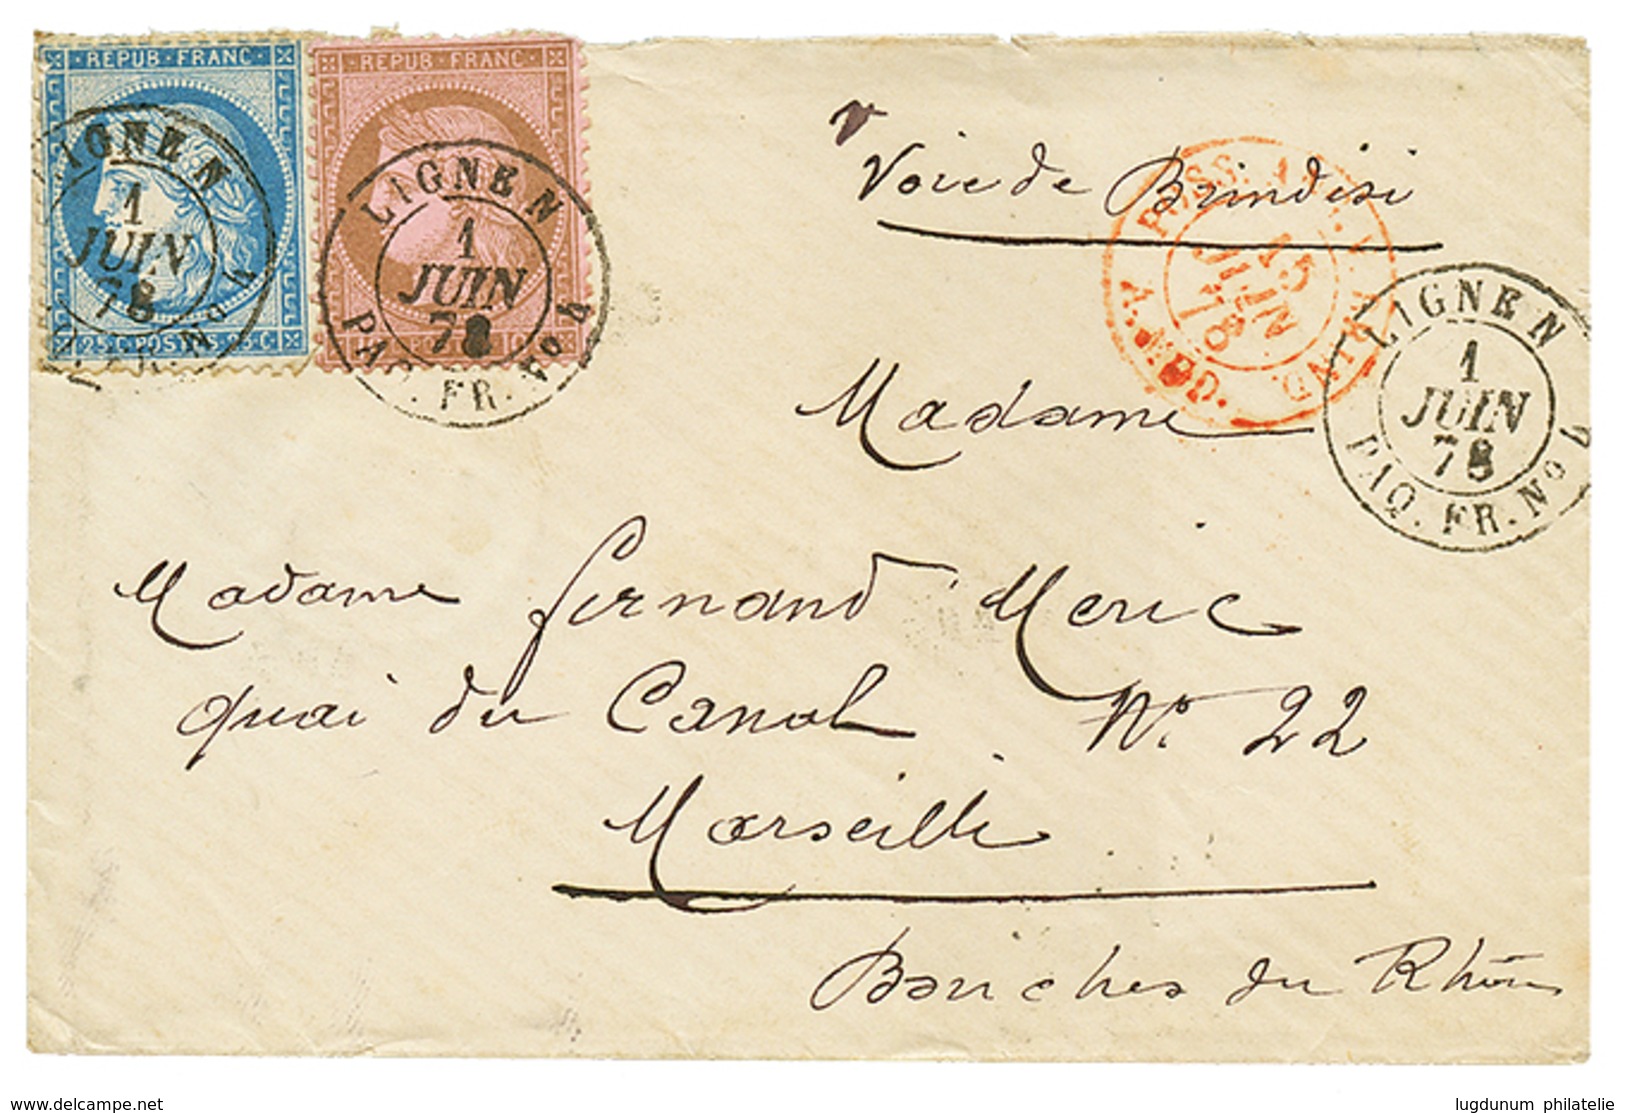 REPUB FRANC
REPUB FRANC
LIGNE N
1
JUIN
78
25 C POSTES 25 C
LIGNE N
1
JUIN
78
PAQ. FR. Nº 4
Voie de Brindisi
15
JUIN
78
LIGNE N
1
JUIN
78
PAQ. FR. Nº 4
Madame
Madame Fernand Meric
quai du Canal Nº 22
Marseille
Bouches du Rhône
www.delcampe.net
lugdunum philatelie